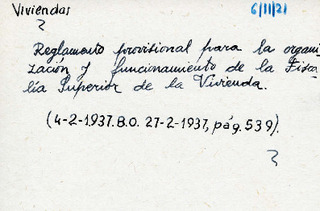 Viviendas
6/11/21
2
Reglamento provisional para la organi-
zación y funcionamiento de la Fisca
lía Superior de la Vivienda.
(4-2-1937. B.O. 27-2-1937, pág. 539).
2